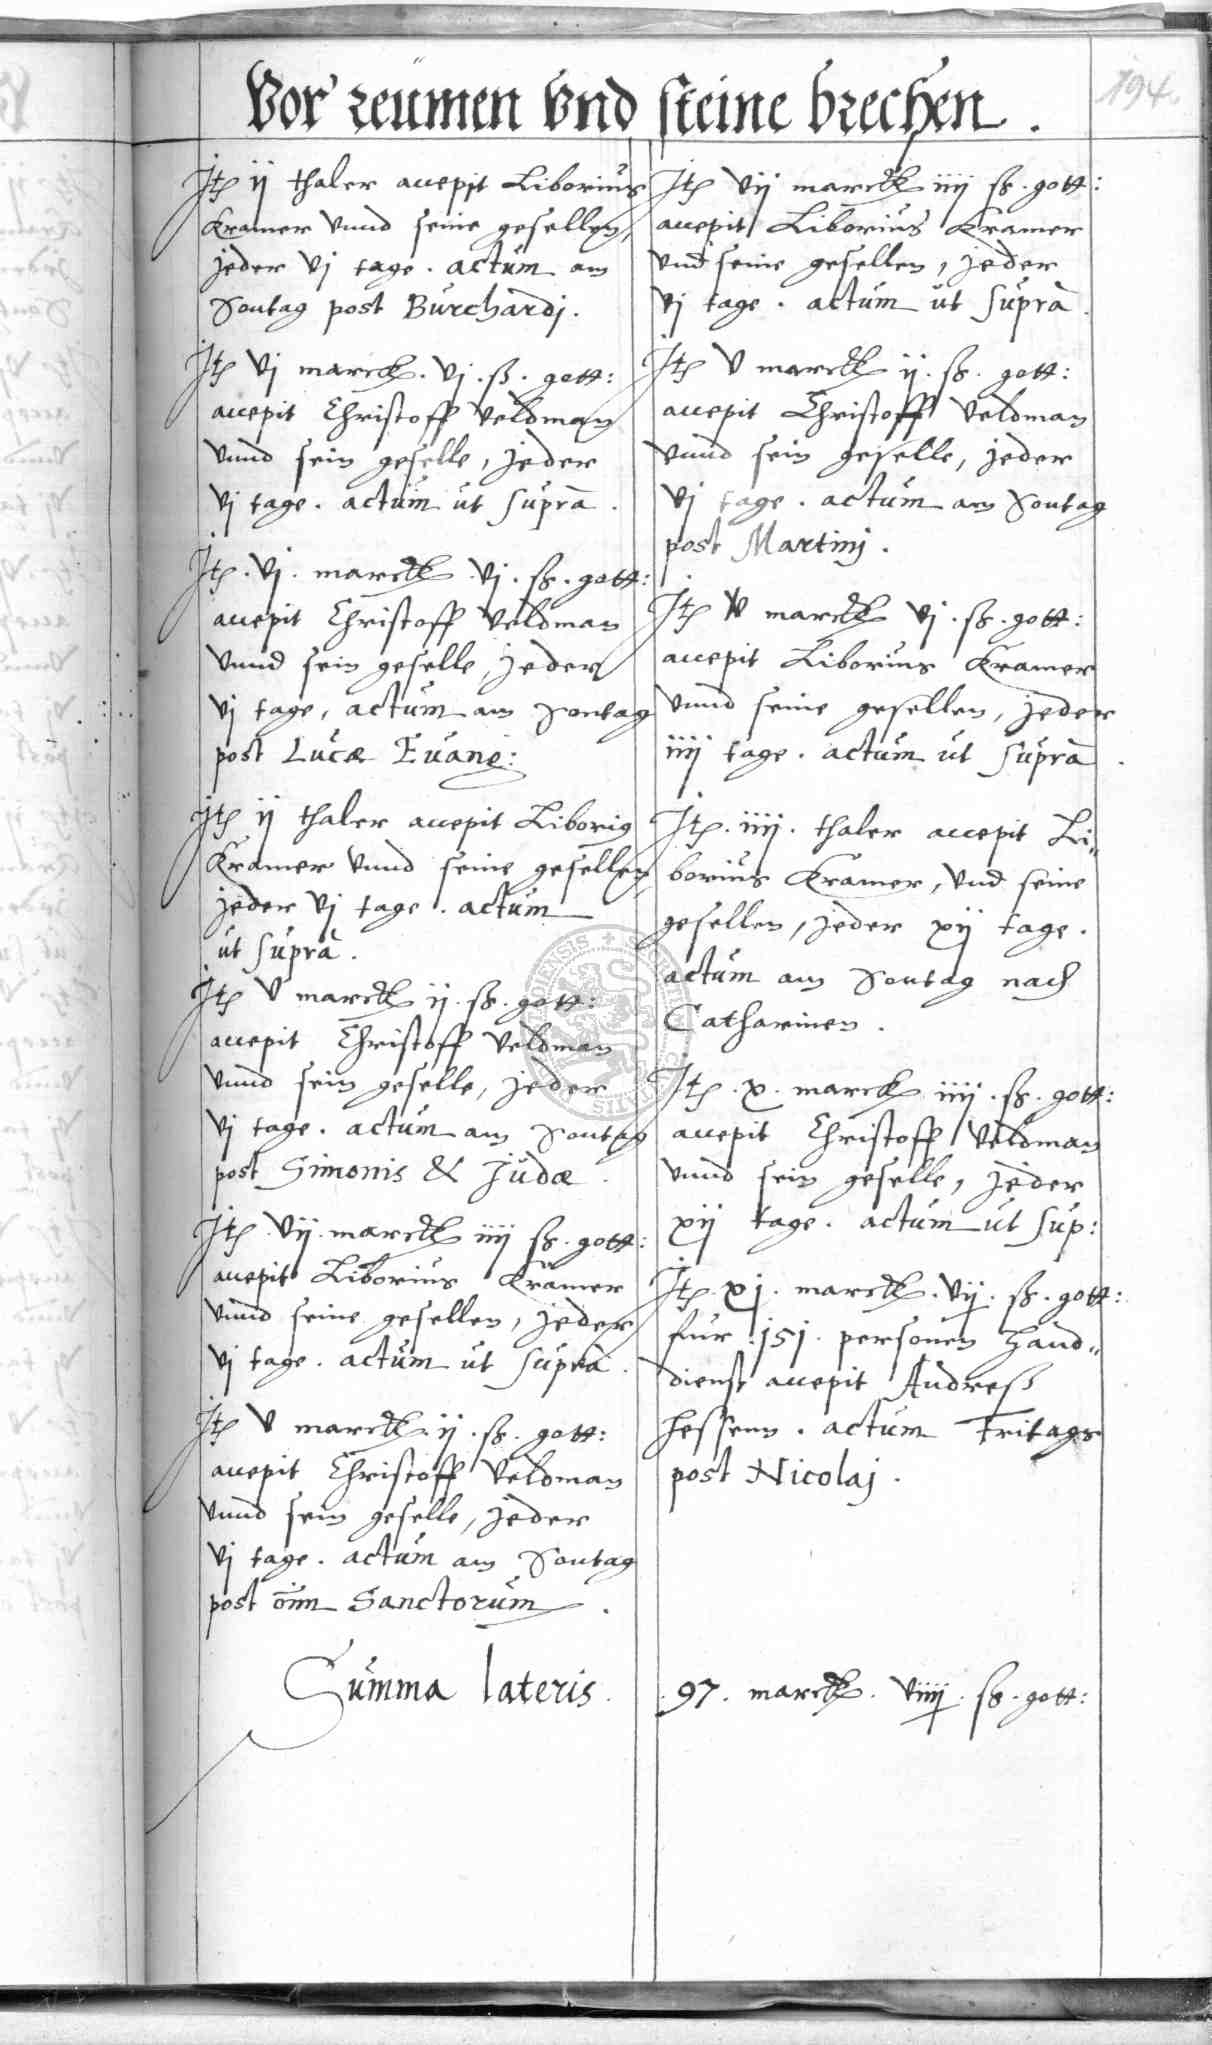 194.
Vor reumen vnd steine brechen.
Jtē ij thaler accepit Liborius
Kramer vnnd seine gesellen,
jeder vj tage. actum am
Sontag post Burchardj.
Jtē vj marck. vj. ß. gott:
accepit Christoff Veldman
vnnd sein geselle, jeder
vj tage. actum ut suprà.
Jtē. vj. marck. vj. ß. gott:
accepit Christoff Veldman
vnnd sein geselle, jeder
vj tage, actum am Sontag
post Lucæ Euang:
Jtē ij thaler accepit Liborig
Kramer vnnd seine gesellen,
jeder vj tage. actum
ut suprà.
Jtē v marck ij. ß. gott:
accepit Christoff Veldman
vnnd sein geselle, jeder
vj tage. actum am Sontag
post Simonis & Judæ.
Jtē. vij. marck iiij ß. gott:
accepit Liborius Kramer
vnnd seine gesellen, jeder
vj tage. actum ut suprà.
Jtē v marck. ij. ß. gott:
accepit Christoff Veldman
vnnd sein geselle, jeder
vj tage. actum am Sontag
post om̄ Sanctorum.
Jtē vij marck iiij ß. gott:
accepit Liborius Kramer
vnd seine gesellen, jeder
vj tage. actum ut suprà.
Jtē v marck ij. ß. gott:
accepit Christoff Veldman
vnnd sein geselle, jeder
vj tage. actum am Sontag
post Martinj.
Jtē marck vj. ß. gott:
accepit Liborius Kramer
vnnd seine gesellen, jeder
iiij tage. actum ut suprà.
Jtē. iiij. thaler accepit Li„
borius Kramer, vnd seine
gesellen, jeder xij tage.
actum am Sontag nach
Catharinen.
Jtē. x. marck iiij. ß. gott:
accepit Christoff Veldman
vnnd sein geselle, jeder
xij tage. actum ut sup:
Jtē. xj. marck. vij. ß. gott:
fur. 151. personen hand„
dienst accepit Andreß
Hessenn. actum Fritags
post Nicolaj.
Summa lateris. 97. marck. viiij. ß. gott: